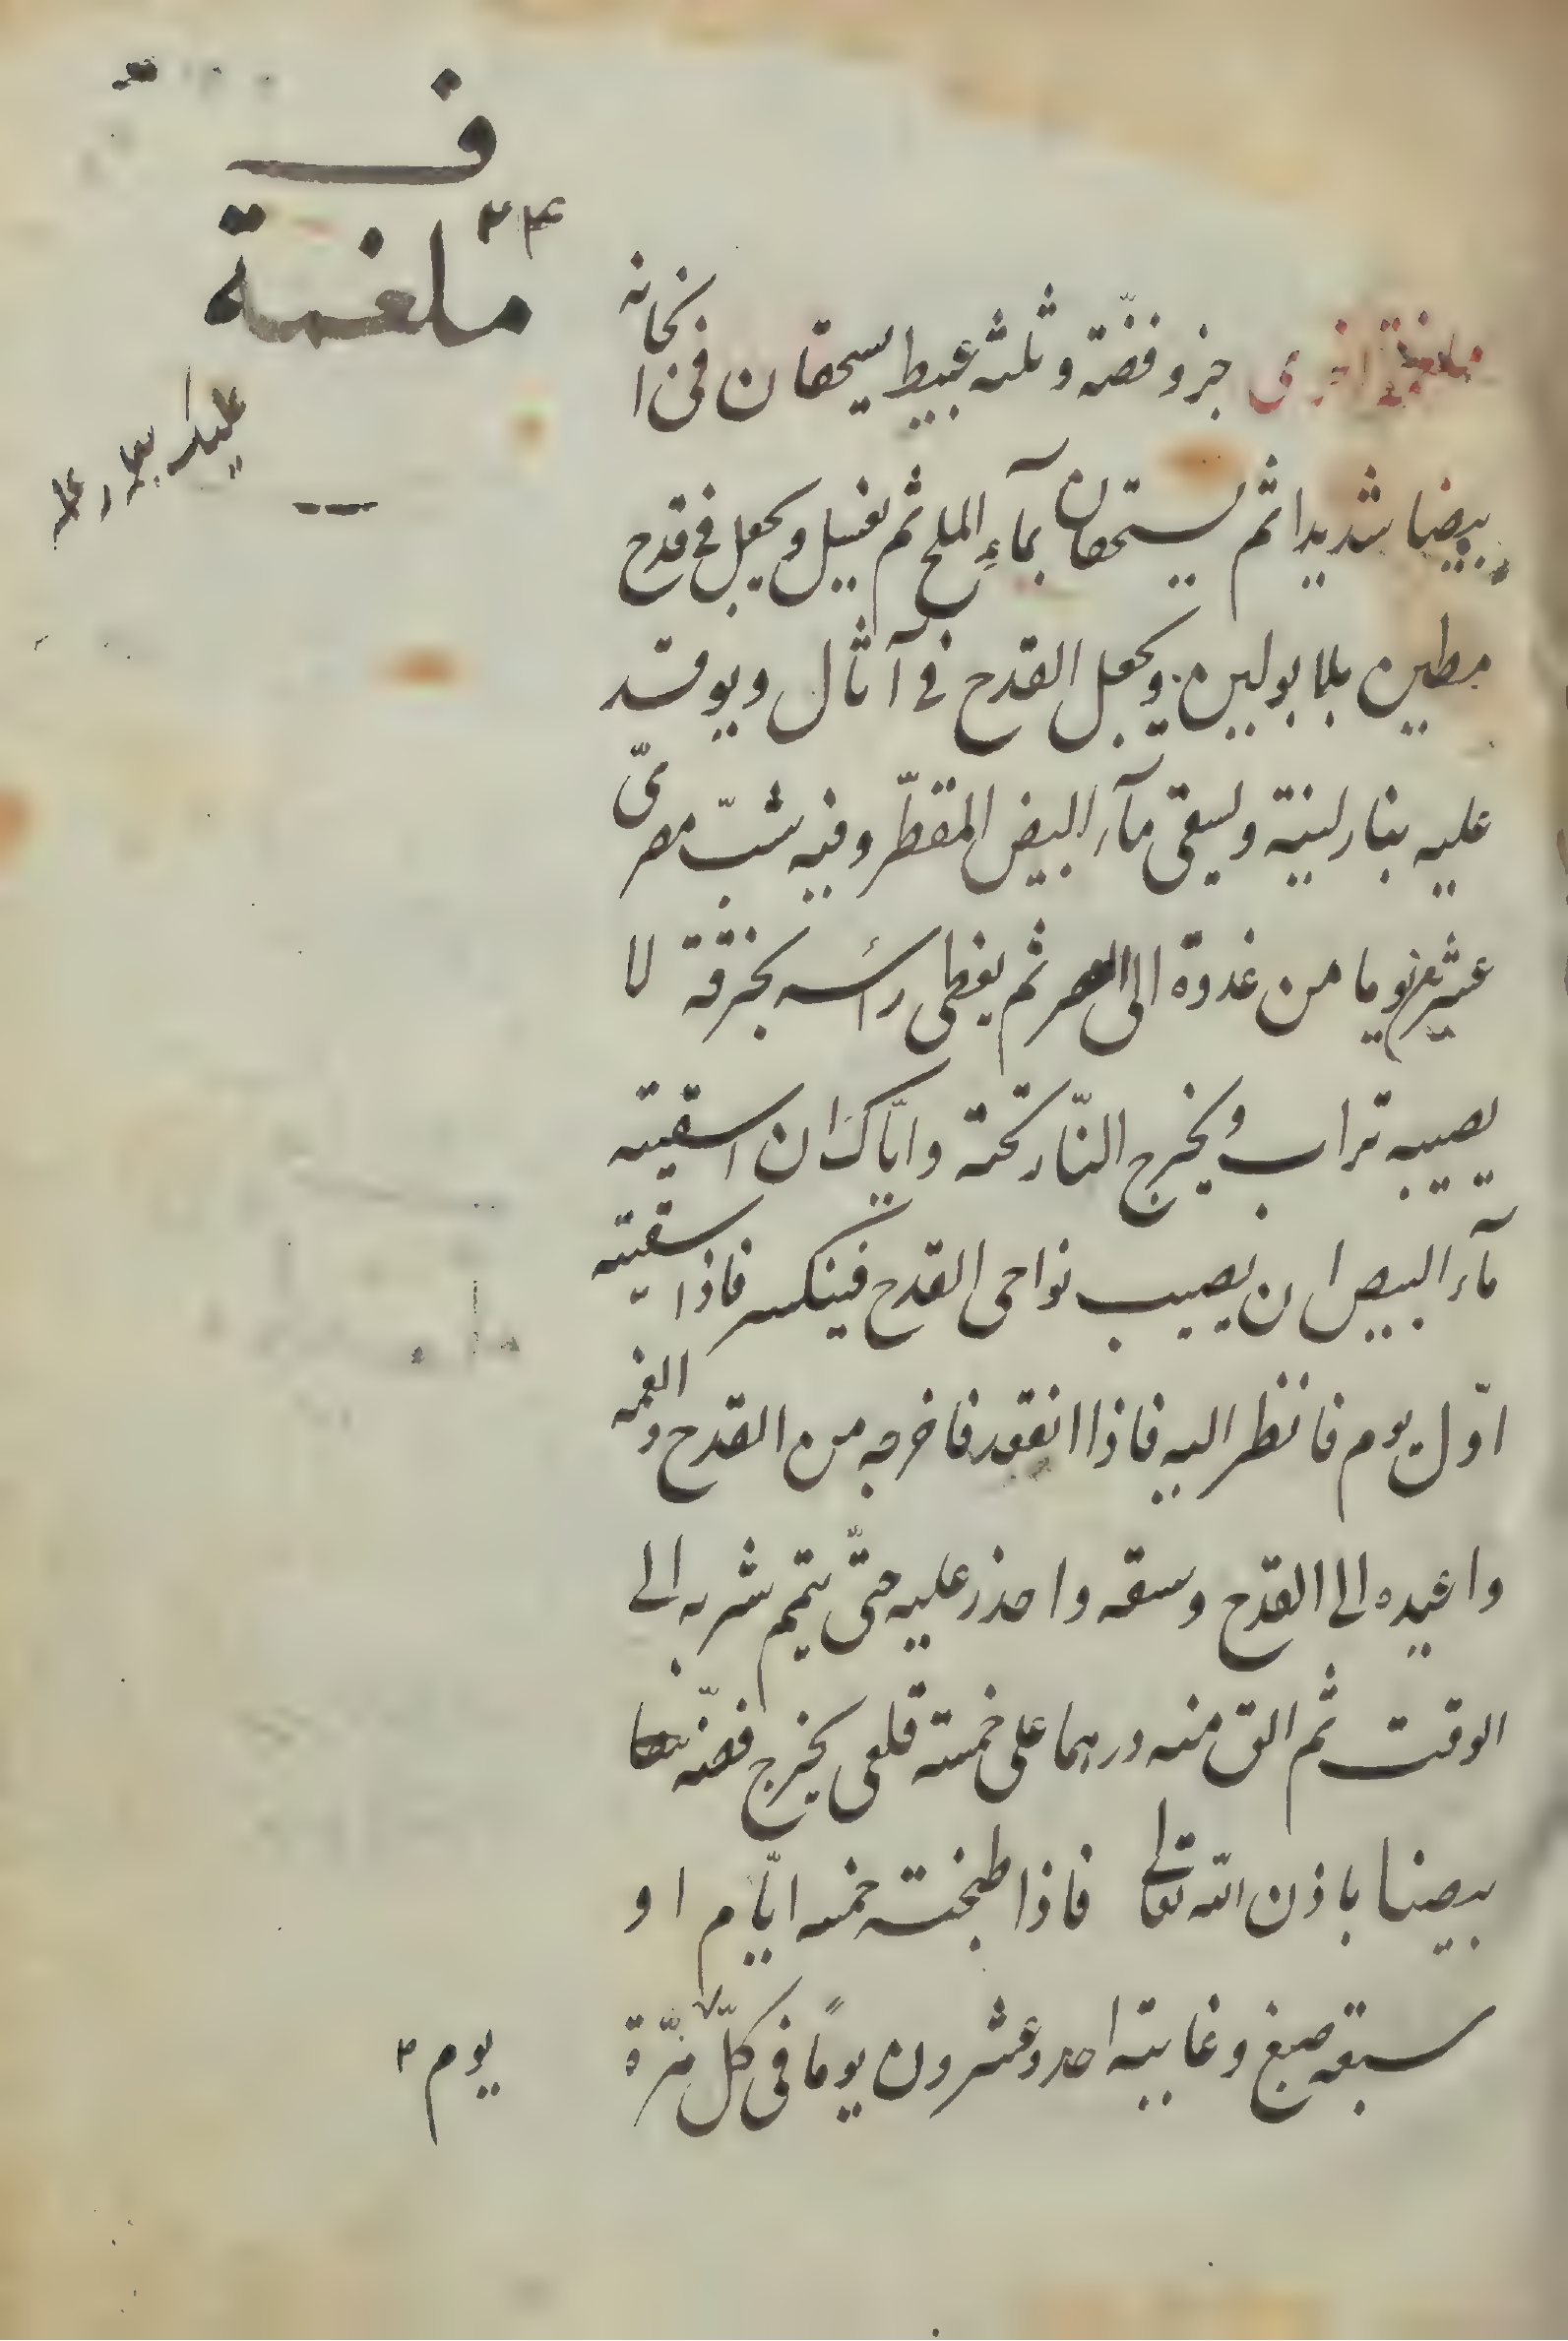 ف
۲۴
ملغمة
ملغمة اخرى جزو فضّة وثلثه عبيط يسحقان فى ا
بيضا شديدا ثم يستحقان بمآءِ الملح ثم يغسل ويجعل فى قدح
مطين بلا بوليين ويجعل القدح فى آثال ويوقد
عليه بنار لينة ويسقى مآء البيض المقطّر وفيه شبّ مصرىّ
عشرين يوما من غدوة الى العصر ثم يغطى رأسه بخرقة لا
يصيبه تراب ويخرج النّار تحته واياّك ان اسقيته
مآء البيض ان يصيب نواحى القدح فينكسر فاذا سقيته
اوّل يوم فانظر اليه فاذا انعقد فاخرجه من القدح والغمه
واعيده الى القدح وسقه واحذر عليه حتّى يتم شربه الى
الوقت ثم الق منه درهما على خمسة قلعى يخرج فضّة
بيضا باذن الله تعالى فاذا طبخته خمسه ايّام او
سبعة صبغ وغايته احد وعشرون يومًا فى كلّ مرّة
يوم ۲